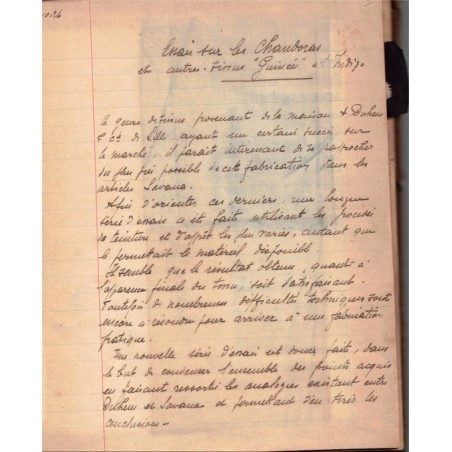 Essais sur les Chandoras
et autres tissus "Guinée" à l'Indigo
le genre de tissus provenant de la maison Duhem
& Cie de Lille ayant un certain succès sur
le marché, il parait intéressant de se rapprocher
du plus près possible de cette fabrication dans les
articles Savana.
Afin d'orienter ces derniers, une longue
série d'essais a été fait utilisant les procédés
de teinture et d'apprêt les plus variés, autant que
le permettait le matériel disponible.
Il semble que le résultat obtenu, quant à
l'aspect final des tissus, soit satisfaisant.
Toutefois de nombreuses difficultés techniques sont
encore à résoudre pour arriver à une fabrication
pratique.
Une nouvelle série d'essais est donc faite, dans
le but de condenser l'ensemble des points acquis
en faisant ressortir les analogies existant entre
Duhem et Savana et permettant d'en tirer les
conclusions -